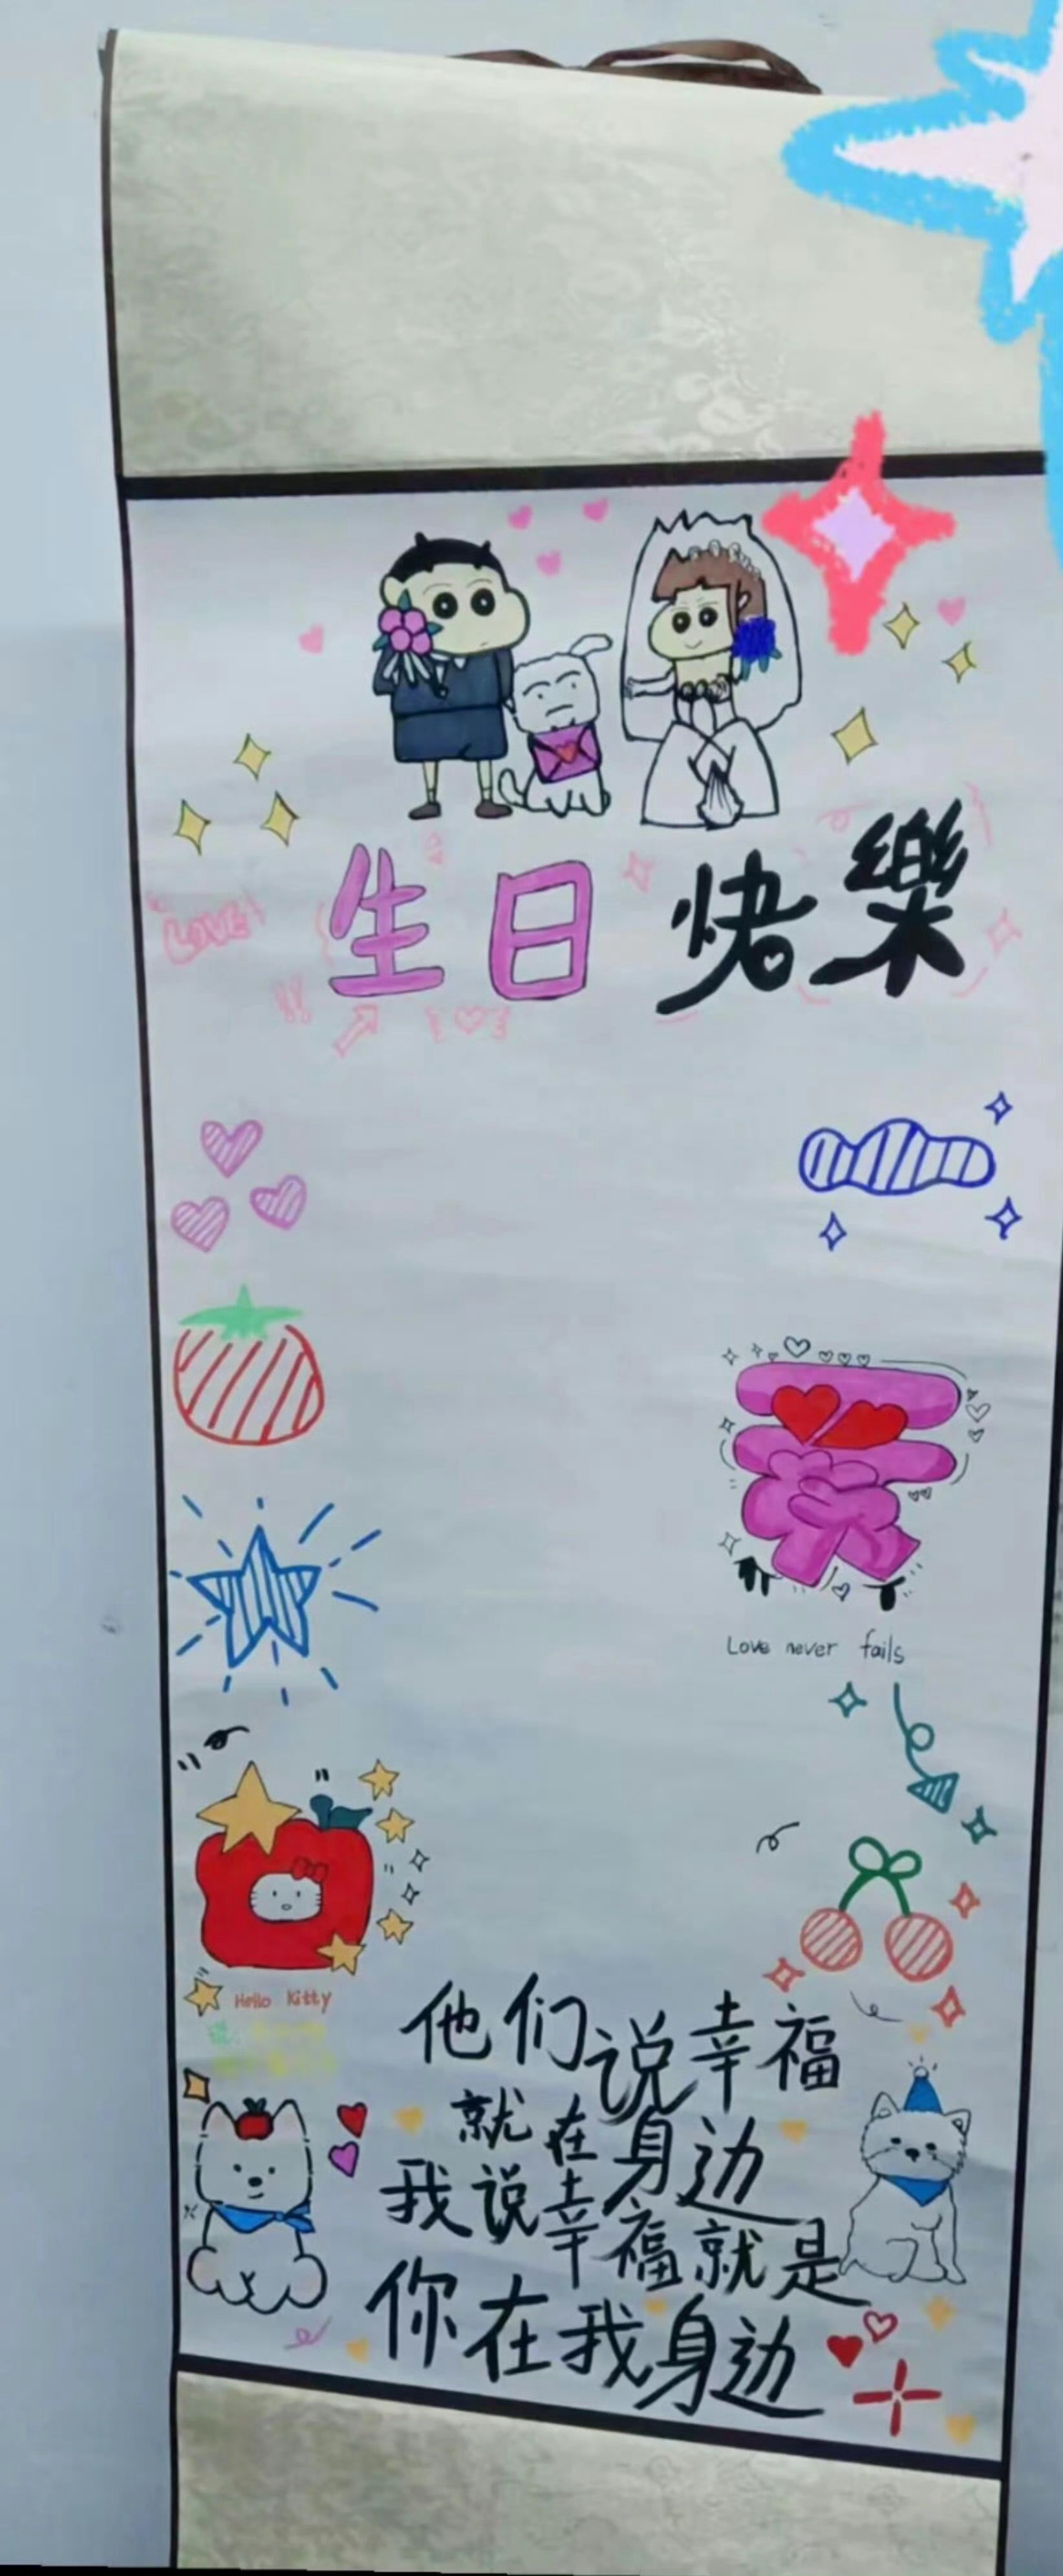 生日快樂
LOVE
Love never fails
Hello Kitty
他们说幸福
就在身边
我说幸福就是
你在我身边